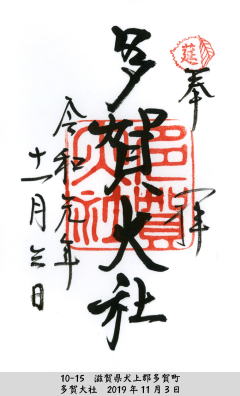 奉拝
多賀大社
令和元年
十一月三日
莚
多賀大社
10-15 滋賀県犬上郡多賀町
多賀大社 2019年11月3日